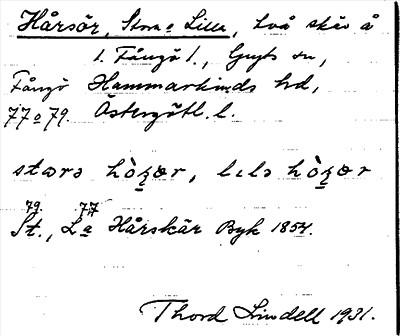 Hårsör, Stora o Lilla, två skär å
1. Fångö 1., Gryts sn,
Fångö Hammarkinds hd,
77 o 79. Östergötl. l.
stœrə hò̱ʐœr, lɩlə hò̱ʐœr
79. 77
St., La Hårskär Byk 1854.
Thord Lindell 1931.